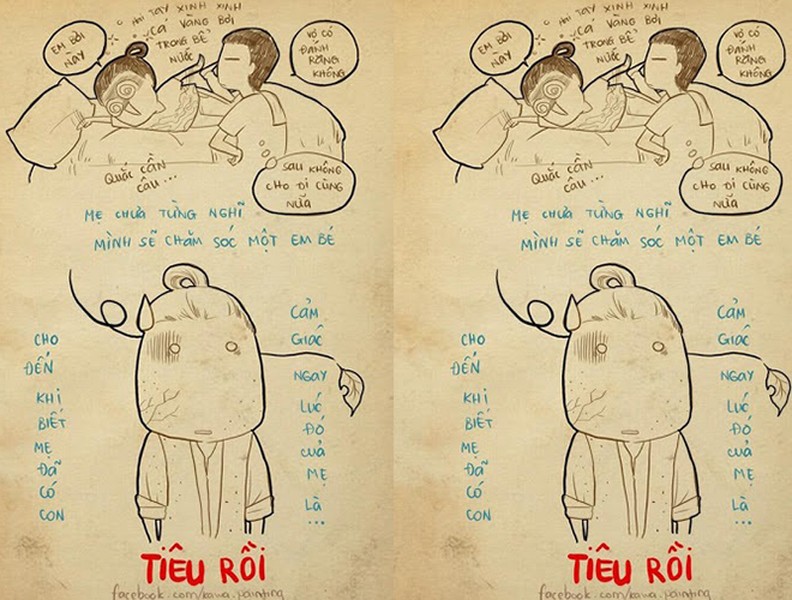 EM BƠI
NÀY
HAI TAY XINH XINH
CÁ VÀNG BƠI
TRONG BỂ
NƯỚC
VỢ CÓ
ĐÁNH
RĂNG
KHÔNG
QUẮC CẦN
CÂU...
SAU KHÔNG
CHO ĐI CÙNG
NỮA
MẸ CHƯA TỪNG NGHĨ
MÌNH SẼ CHĂM SÓC MỘT EM BÉ
CHO
ĐẾN
KHI
BIẾT
MẸ
ĐÃ
CÓ
CON
CẢM
GIÁC
NGAY
LÚC
ĐÓ
CUẢ
MẸ
LÀ
...
TIÊU RỒI
facebook.com/kawa.painting
EM BƠI
NÀY
HAI TAY XINH XINH
CÁ VÀNG BƠI
TRONG BỂ
NƯỚC
VỢ CÓ
ĐÁNH
RĂNG
KHÔNG
QUẮC CẦN
CÂU...
SAU KHÔNG
CHO ĐI CÙNG
NỮA
MẸ CHƯA TỪNG NGHĨ
MÌNH SẼ CHĂM SÓC MỘT EM BÉ
CHO
ĐẾN
KHI
BIẾT
MẸ
ĐÃ
CÓ
CON
CẢM
GIÁC
NGAY
LÚC
ĐÓ
CUẢ
MẸ
LÀ
...
TIÊU RỒI
facebook.com/kawa.painting